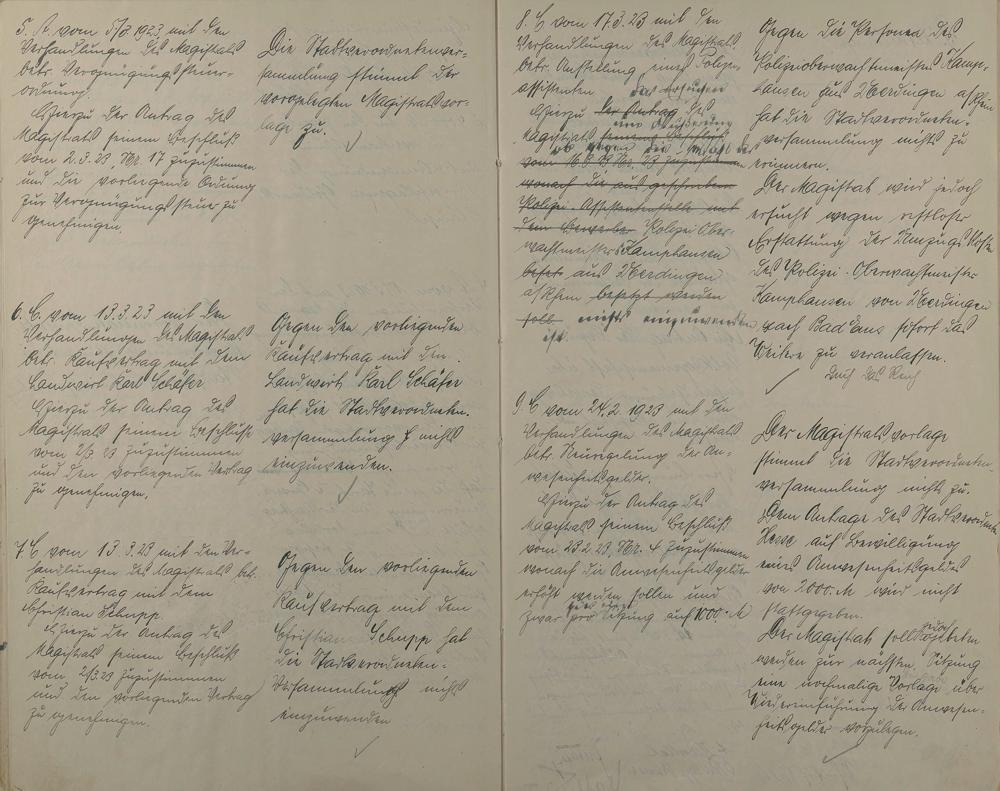 5. A. vom 5/3 1923 mit den
Verhandlungen des Magistrats
betr. Vergnügungssteuer-
ordnung.
Hierzu der Antrag des
Magistrats seinem Beschluß
vom 2.3.23 Nr. 17 zuzustimmen
und die vorliegende Ordnung
zur Vergnügungssteuer zu
genehmigen.
Die Stadtverordnetenver-
sammlung stimmt der
vorgelegten Magistratsvor-
lage zu.
6. C. vom 13.3.23 mit den
Verhandlungen des Magistrats
betr. Kaufvertrag mit dem
Landwirt Karl Schäfer
Hierzu der Antrag des
Magistrats seinem Beschluße
vom 2/3 23 zuzustimmen
und den vorliegenden Vertrag
zu genehmigen.
Gegen den vorliegenden
Kaufvertrag mit dem
Landwirt Karl Schäfer
hat die Stadtverordneten-
versammlung nichts
einzuwenden.
7. C vom 13.3.23 mit den Ver-
handlungen des Magistrats bet.
Kaufvertrag mit dem
Christian Schupp
Hierzu der Antrag des
Magistrats seinem Beschluß
vom 2/3.23 zuzustimmen
und den vorliegenden Vertrag
zu genehmigen.
Gegen den vorliegenden
Kaufvertrag mit dem
Christian Schupp hat
die Stadtverordneten-
Versammlung nichts
einzuwenden
8. C vom 17.3.23 mit den
Verhandlungen des Magistrats
betr. Anstellung eines Polizei
assistenten
das Ersuchen
Hierzu der Antrag des
um Äußerung
Magistrats seinem Beschluß
ob gegen die
vom 16.3.23 Nr. 23 zuzustimmen
wonach die ausgeschriebene
Polizei-Assistentenstelle mit
dem Bewerber Polizei Ober-
wachtmeisters Kamphausen
aus Uerdingen
a/Rhein besetzt werden
soll. nichts einzuwenden
ist.
Gegen die Person des
Polizeioberwachtmeisters Kamp-
hausen aus Uerdingen a/Rhein
hat die Stadtverordneten-
versammlung nichts zu
erinnern.
Der Magistrat wird jedoch
ersucht wegen restloser
Erstattung der Umzugskosten
des Polizei-Oberwachtmeister
Kamphausen von Uerdingen
nach Bad Ems sofort das
Weitere zu veranlassen.
durch das Reich
9. C vom 24.2.1923 mit den
Verhandlungen des Magistrats
betr. Neuregelung der An-
wesenheitsgelder.
Hierzu der Antrag des
Magistrats seinem Beschluß
vom 23.2.23, Nr. 4 zuzustimmen
wonach die Anwesenheitsgelder
erhöht werden sollen und
zwar pro Sitzung auf 1000.- M
Der Magistratsvorlage
stimmt die Stadtverordneten
versammlung nicht zu.
Dem Antrage des Stadtverordneten
auf Bewilligung
eines Anwesenheitsgeldes
von 2000.M wird nicht
stattgegeben.
jedoch
Der Magistrat soll gebeten
werden zur nächsten Sitzung
eine nochmalige Vorlage über
Wiedereinführung der Anwesen-
heitsgelder vorzulegen.